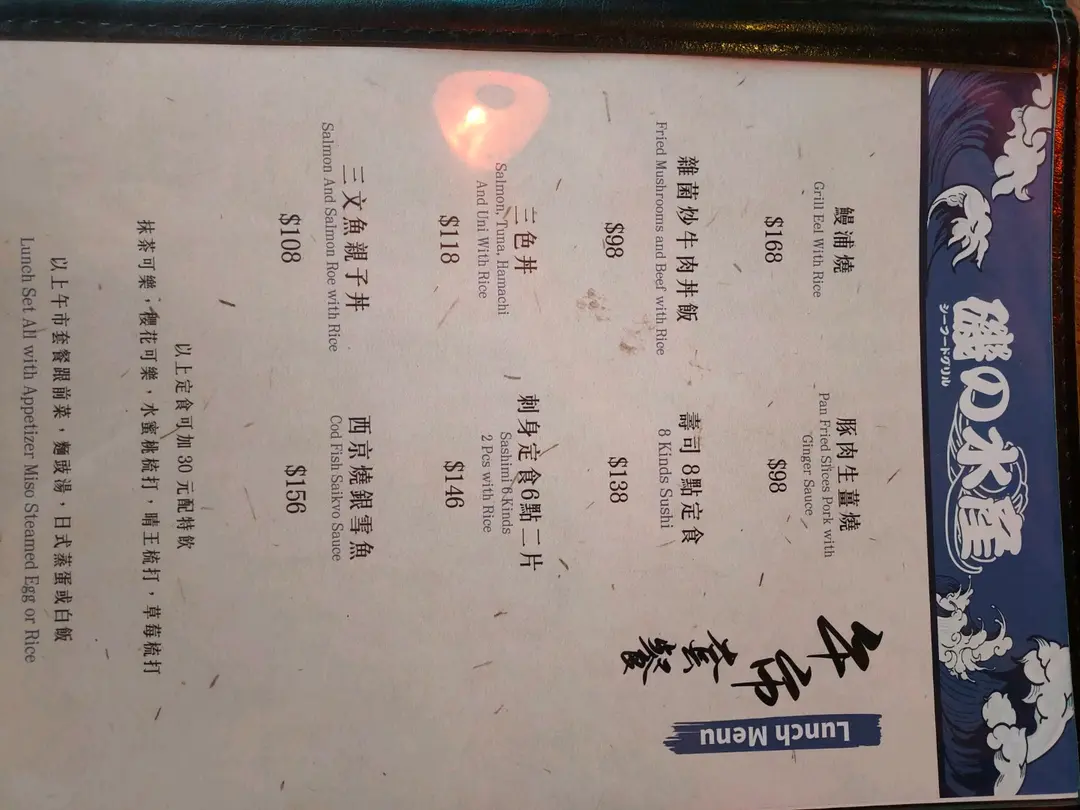 磯の水産
シーフードグリル
午市套餐
Lunch Menu
鰻浦燒
Grill Eel With Rice
$168
豚肉生薑燒
Pan Fried Slices Pork with
Ginger Sauce
$98
雜菌炒牛肉丼飯
Fried Mushrooms and Beef with Rice
$98
壽司8點定食
8 Kinds Sushi
$138
三色丼
Salmon, Tuna, Hamachi
And Uni With Rice
$118
刺身定食6點二片
Sashimi 6 Kinds
2 Pcs with Rice
$146
三文魚親子丼
Salmon And Salmon Roe with Rice
$108
西京燒銀雪魚
Cod Fish Saikvo Sauce
$156
以上定食可加30元配特飲
抹茶可樂，櫻花可樂，水蜜桃梳打，晴王梳打，草莓梳打
以上午市套餐跟前菜，麵豉湯，日式蒸蛋或白飯
Lunch Set All with Appetizer Miso Steamed Egg or Rice